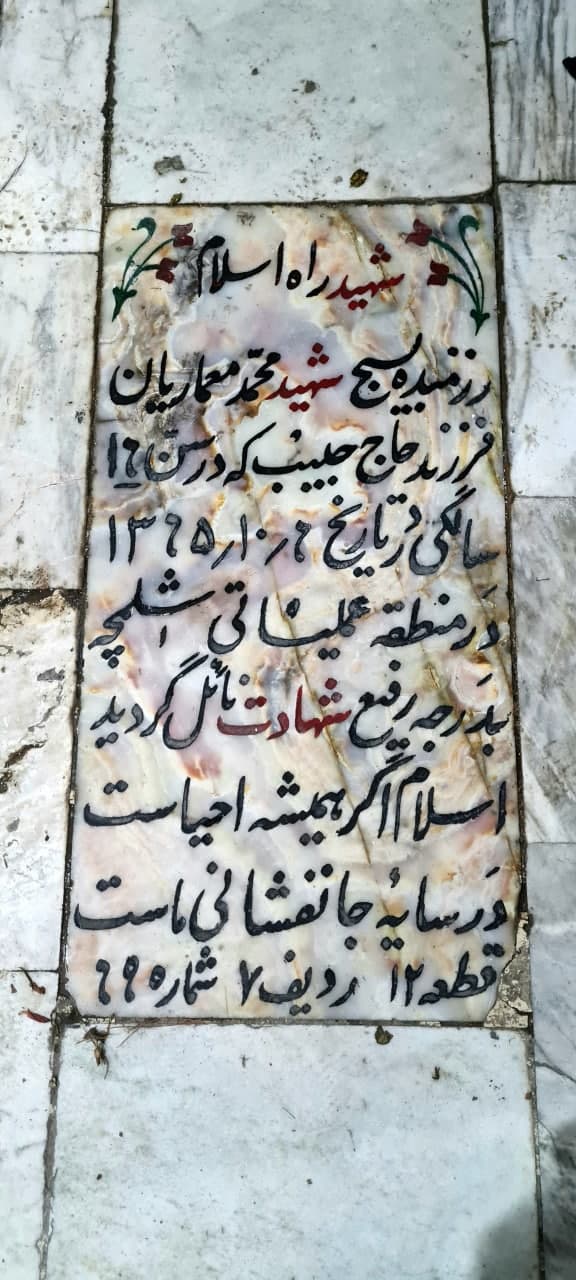 شهید راه اسلام
رزمنده بسیج شهید محمّد معماریان
فرزند حاج حبیب که در سنّ ۱۶
سالگی در تاریخ ۴ر۱۰ر۱۳۶۵
دَر منطقه عملیاتی شلمچه
بدَرجه رفیع شهادت نائل گردید
اسلام اگر همیشه احیاست
دَر سایهٔ جانفشانی ماست
قطعه ۱۲ ردیف ۷ شماره ۶۹